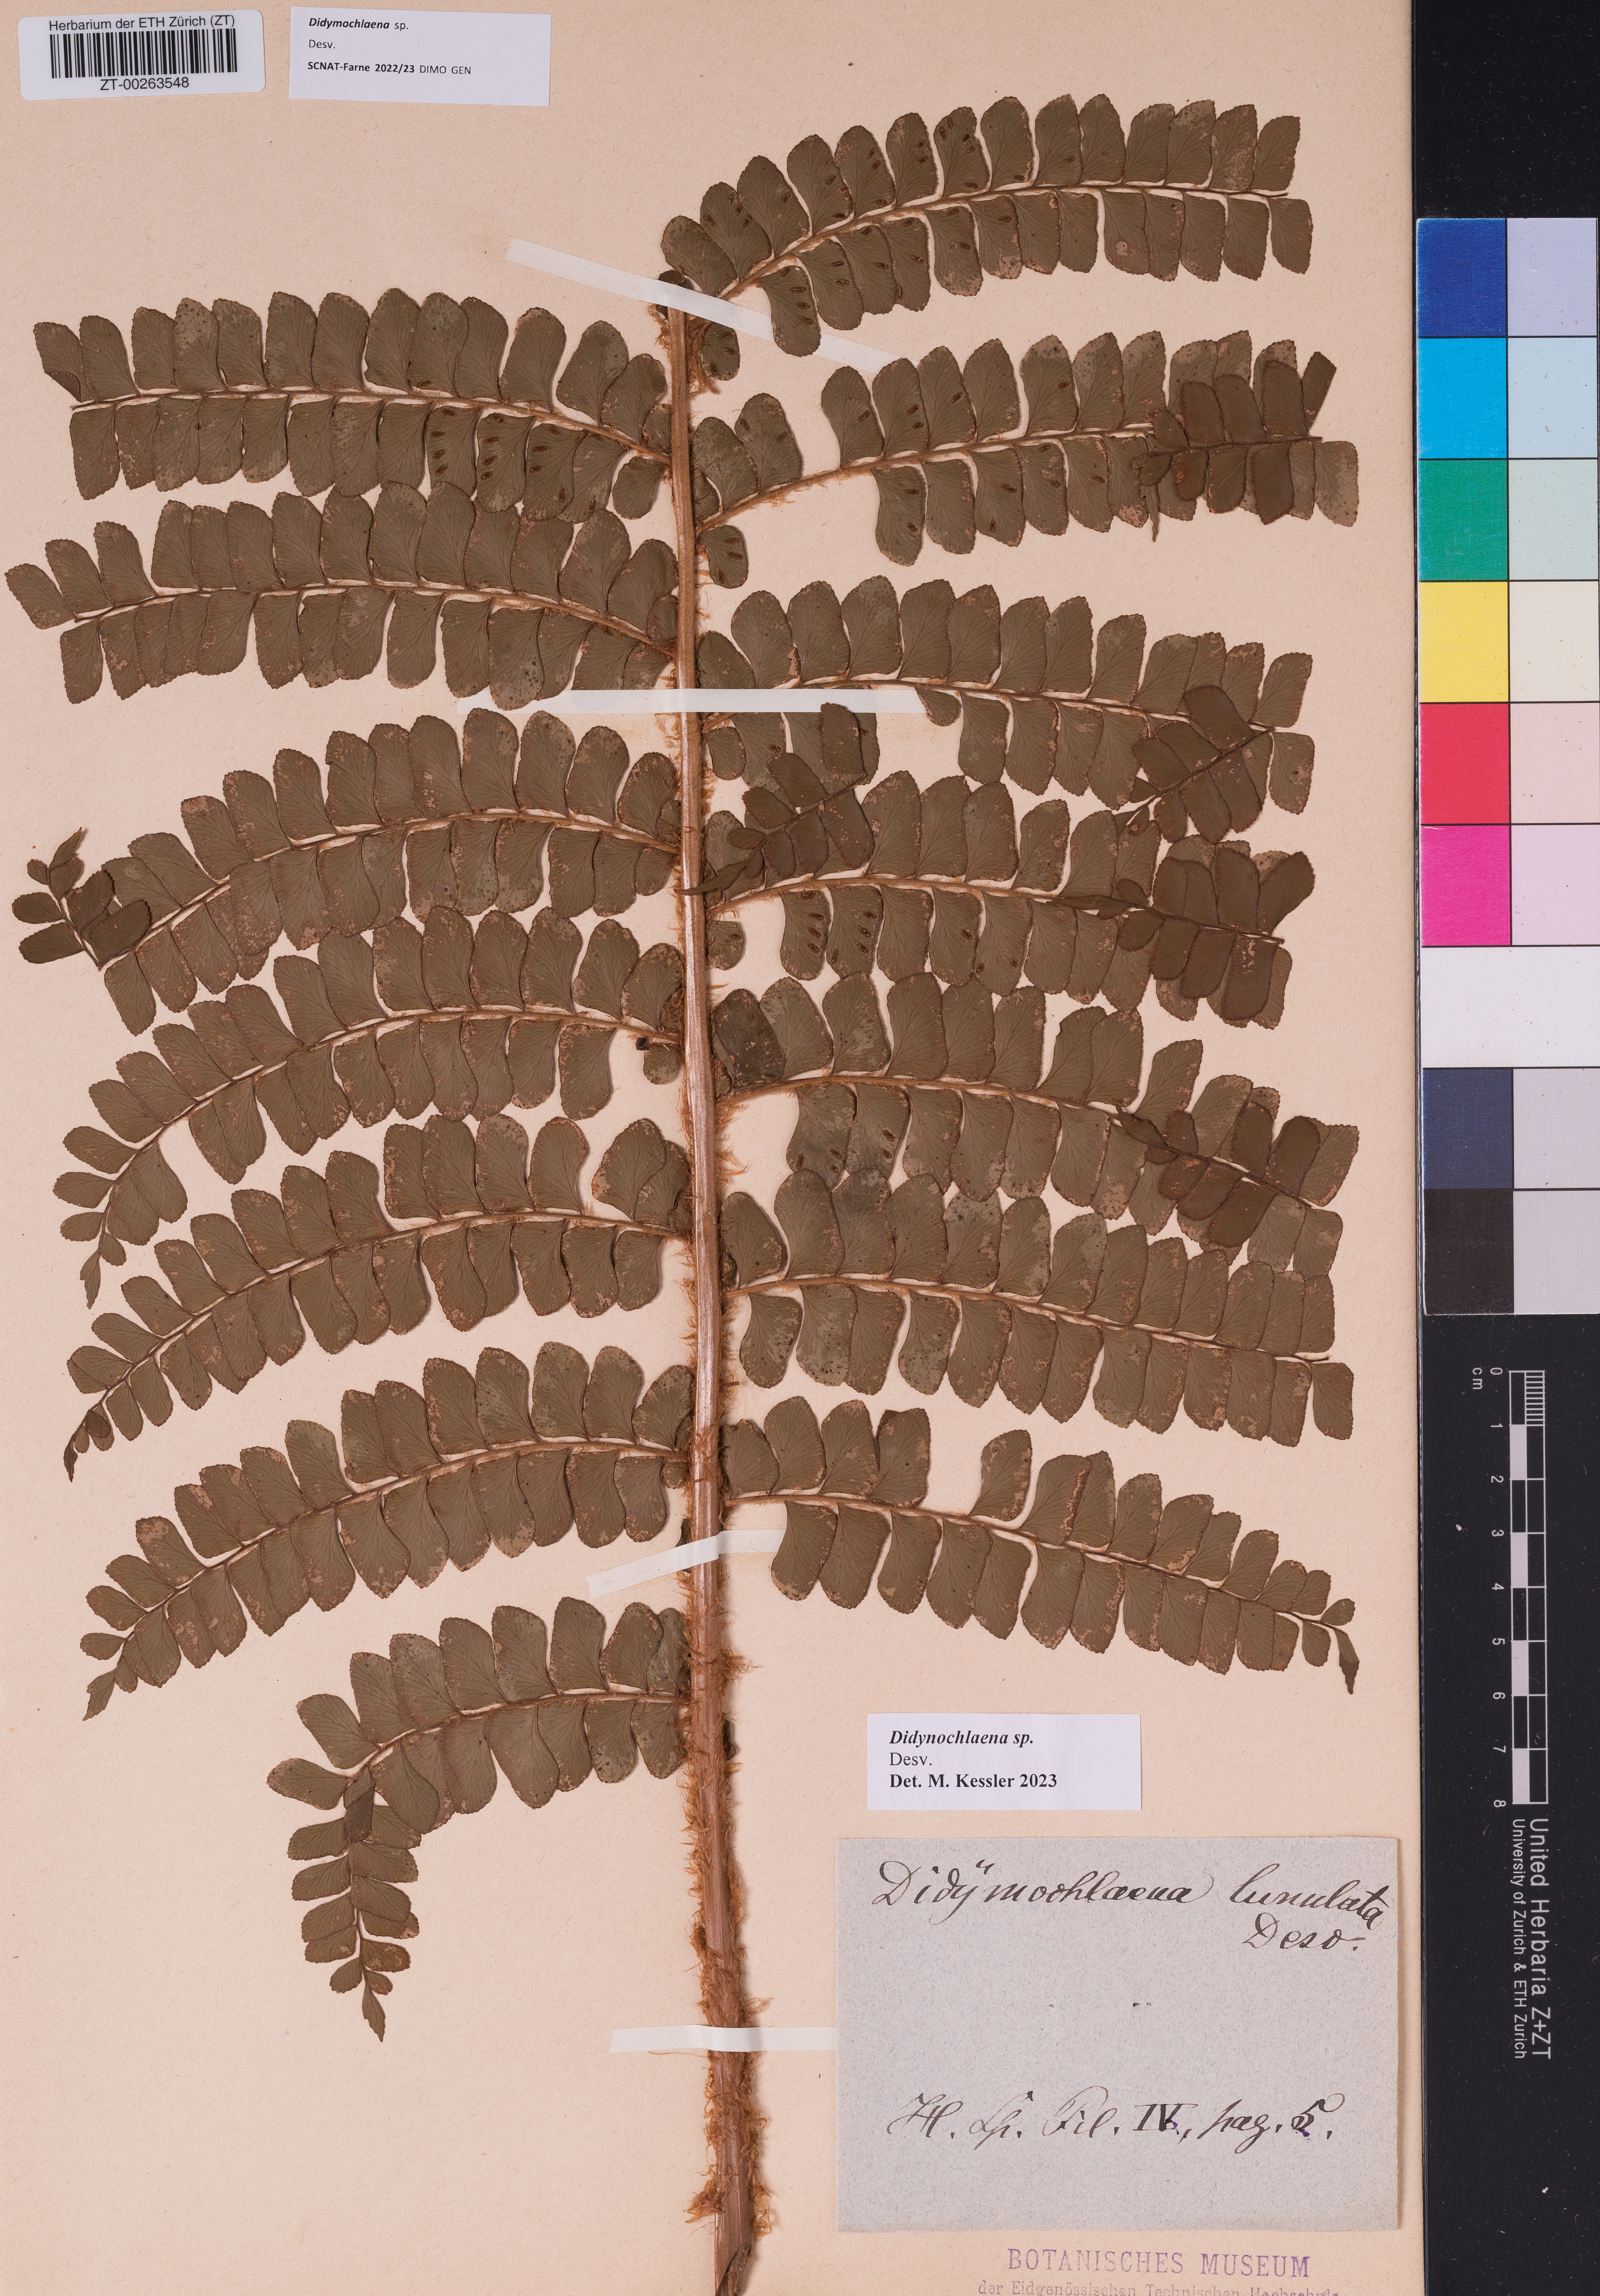 Herbarium der ETH Zürich (ZT)
ZT-00263548
Didymochlaena sp.
Desv.
SCNAT-Farne 2022/23 DIMO GEN
cm
0
1
2
3
4
5
6
7
8
United Herbaria Z+ZT
University of Zurich & ETH Zurich
Didynochlaena sp.
Desv.
Det. M. Kessler 2023
Didÿmochlaena lunulata
Desv.
H. Sp. Fil. IV., pag. 5.
BOTANISCHES MUSEUM
der Eidgenössischen Technischen Hochschule